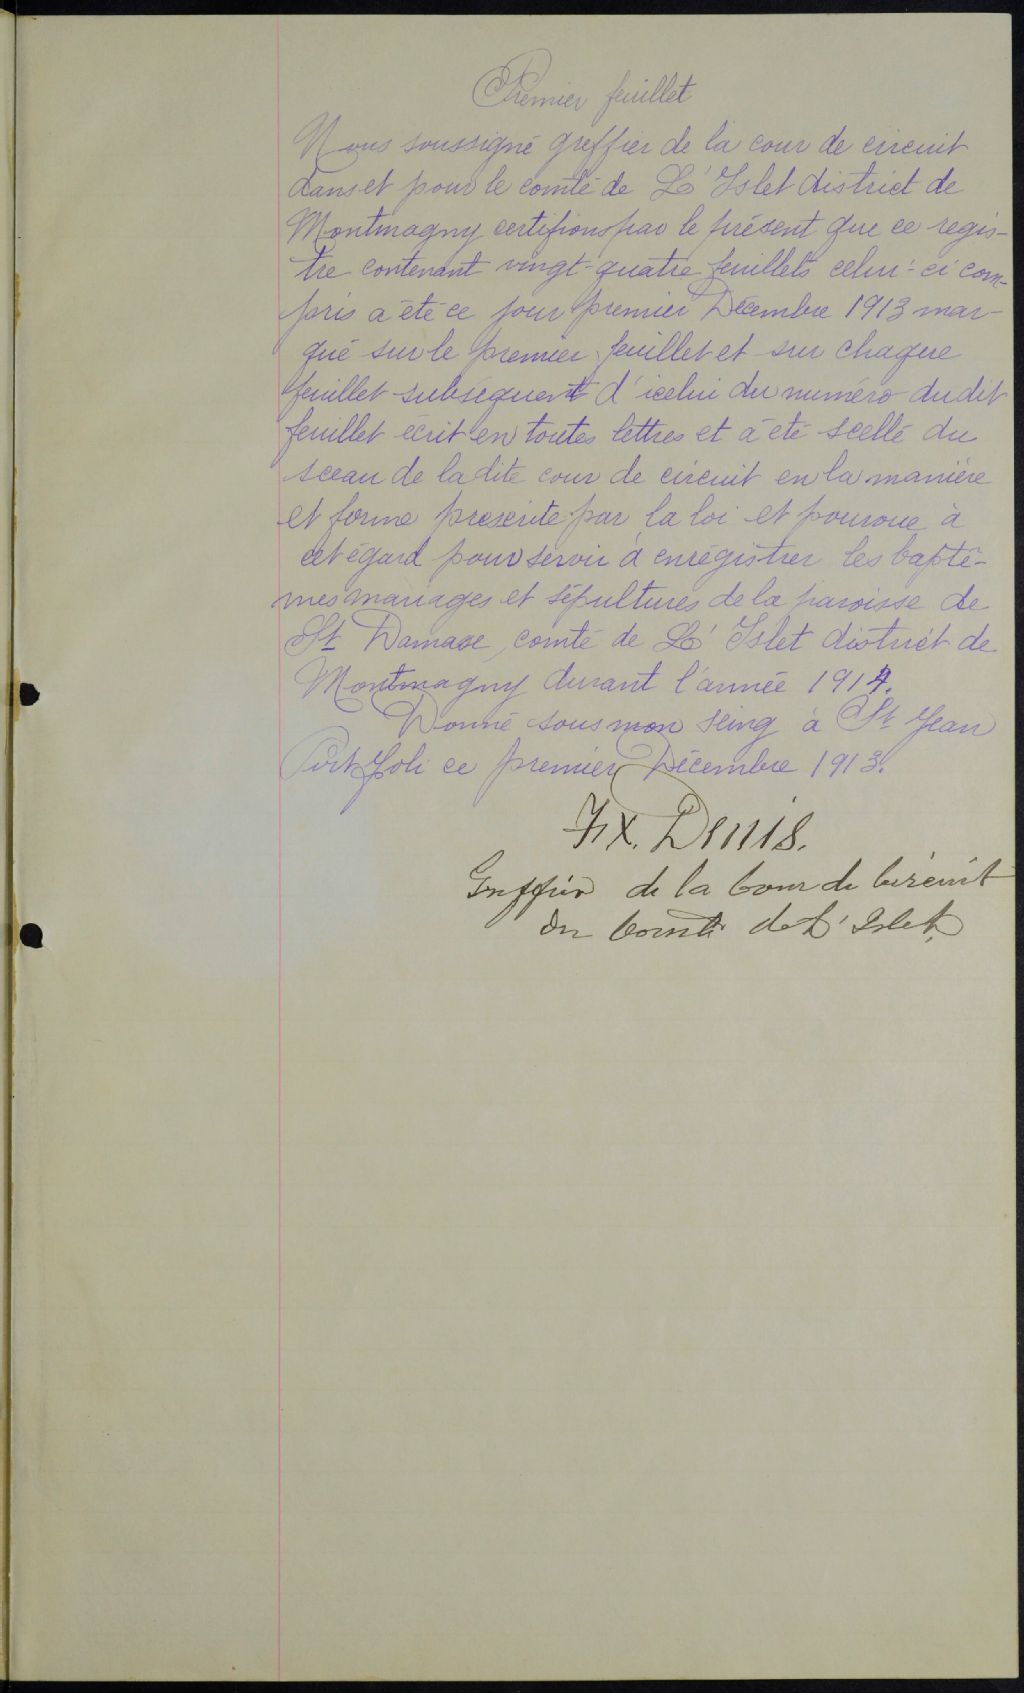 Premier feuillet
Nous soussigné greffier de la cour de circuit
dans et pour le comté de L'Islet district de
Montmagny certifions par le présent que ce regis-
tre contenant vingt-quatre feuillets celui-ci com-
pris a été ce jour premier Décembre 1913 mar-
qué sur le premier feuillet et sur chaque
feuillet subséquent d'icelui du numéro dudit
feuillet écrit en toutes lettres et a été scellé du
sceau de la dite cour de circuit en la manière
et forme prescrite par la loi et pourvue à
cet égard pour servir à enrégistrer les baptê-
mes mariages et sépultures de la paroisse de
St Damase, comté de L'Islet district de
Montmagny durant l'année 1914.
Donné sous mon seing à St Jean
Port Joli ce premier Décembre 1913.
F. X. Denis.
Greffier de la Cour de Circuit
du Comté de L'Islet.